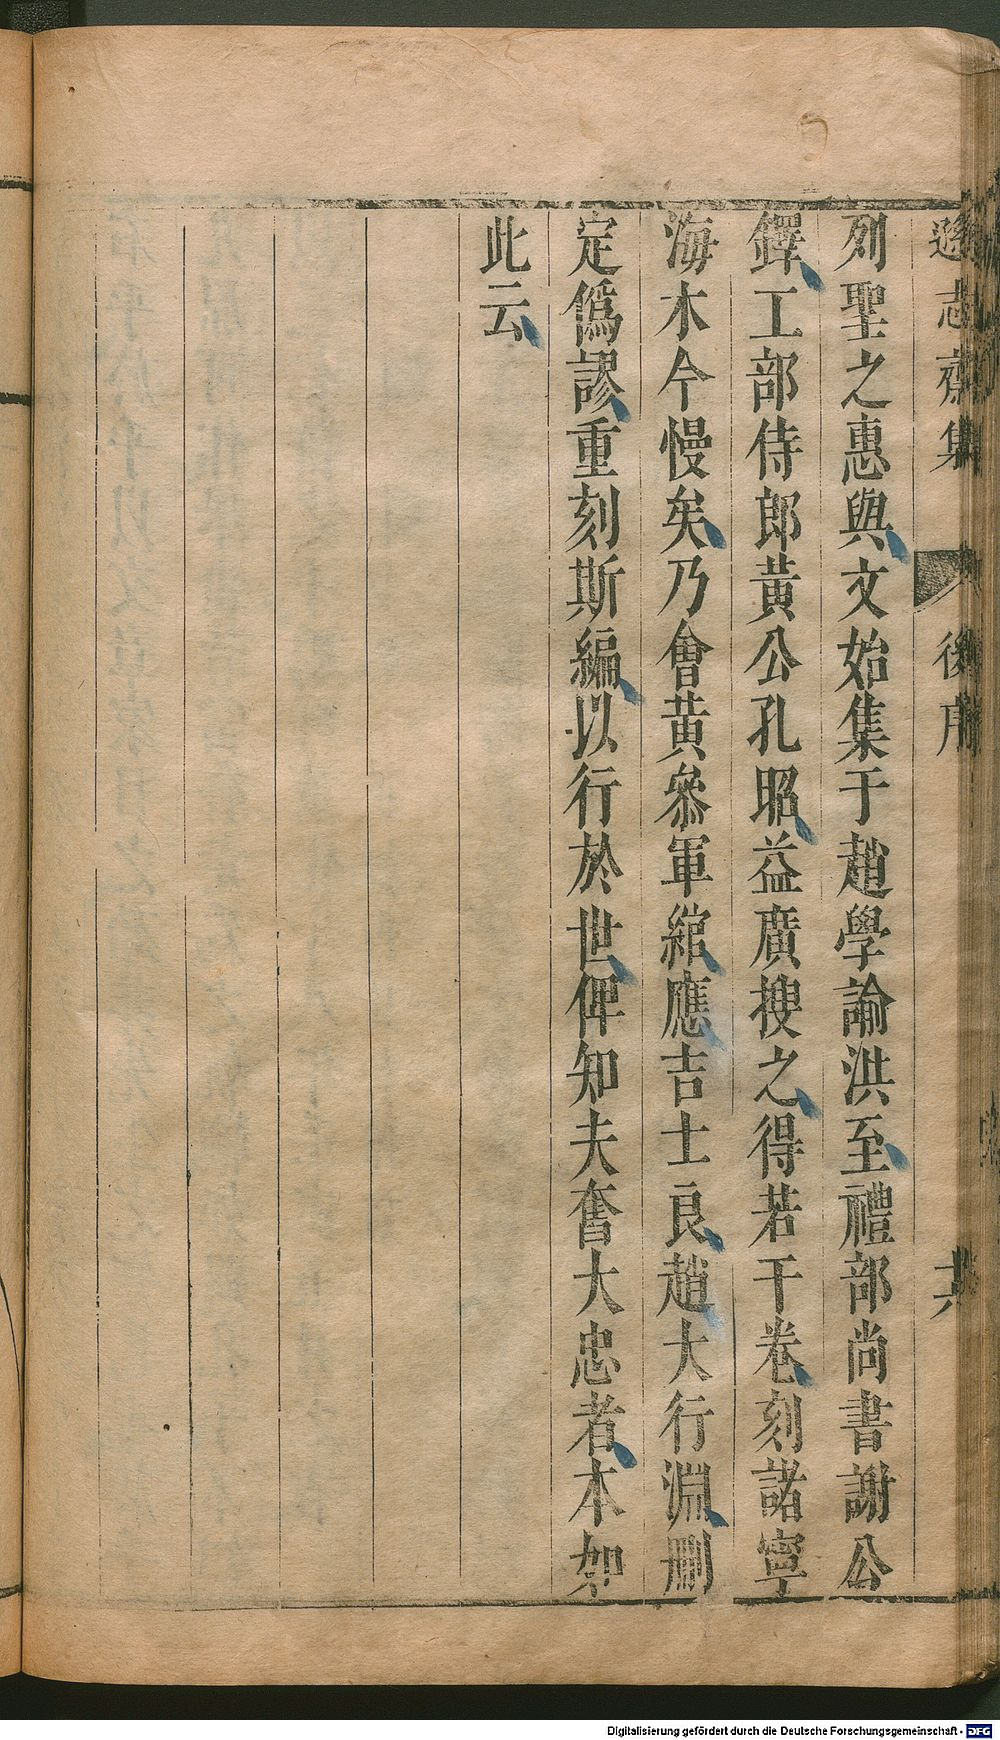 遜志齋集 後序 十六
列聖之惠與文始集于趙學諭洪至禮部尚書謝公
鐸工部侍郎黃公孔昭益廣搜之得若干卷刻諸寧
海木今慢矣乃會黃叅軍綰應吉士良趙大行淵刪
定僞謬重刻斯編以行於世俾知夫奮大忠者本如
此云
Digitalisierung gefördert durch die Deutsche Forschungsgemeinschaft - DFG